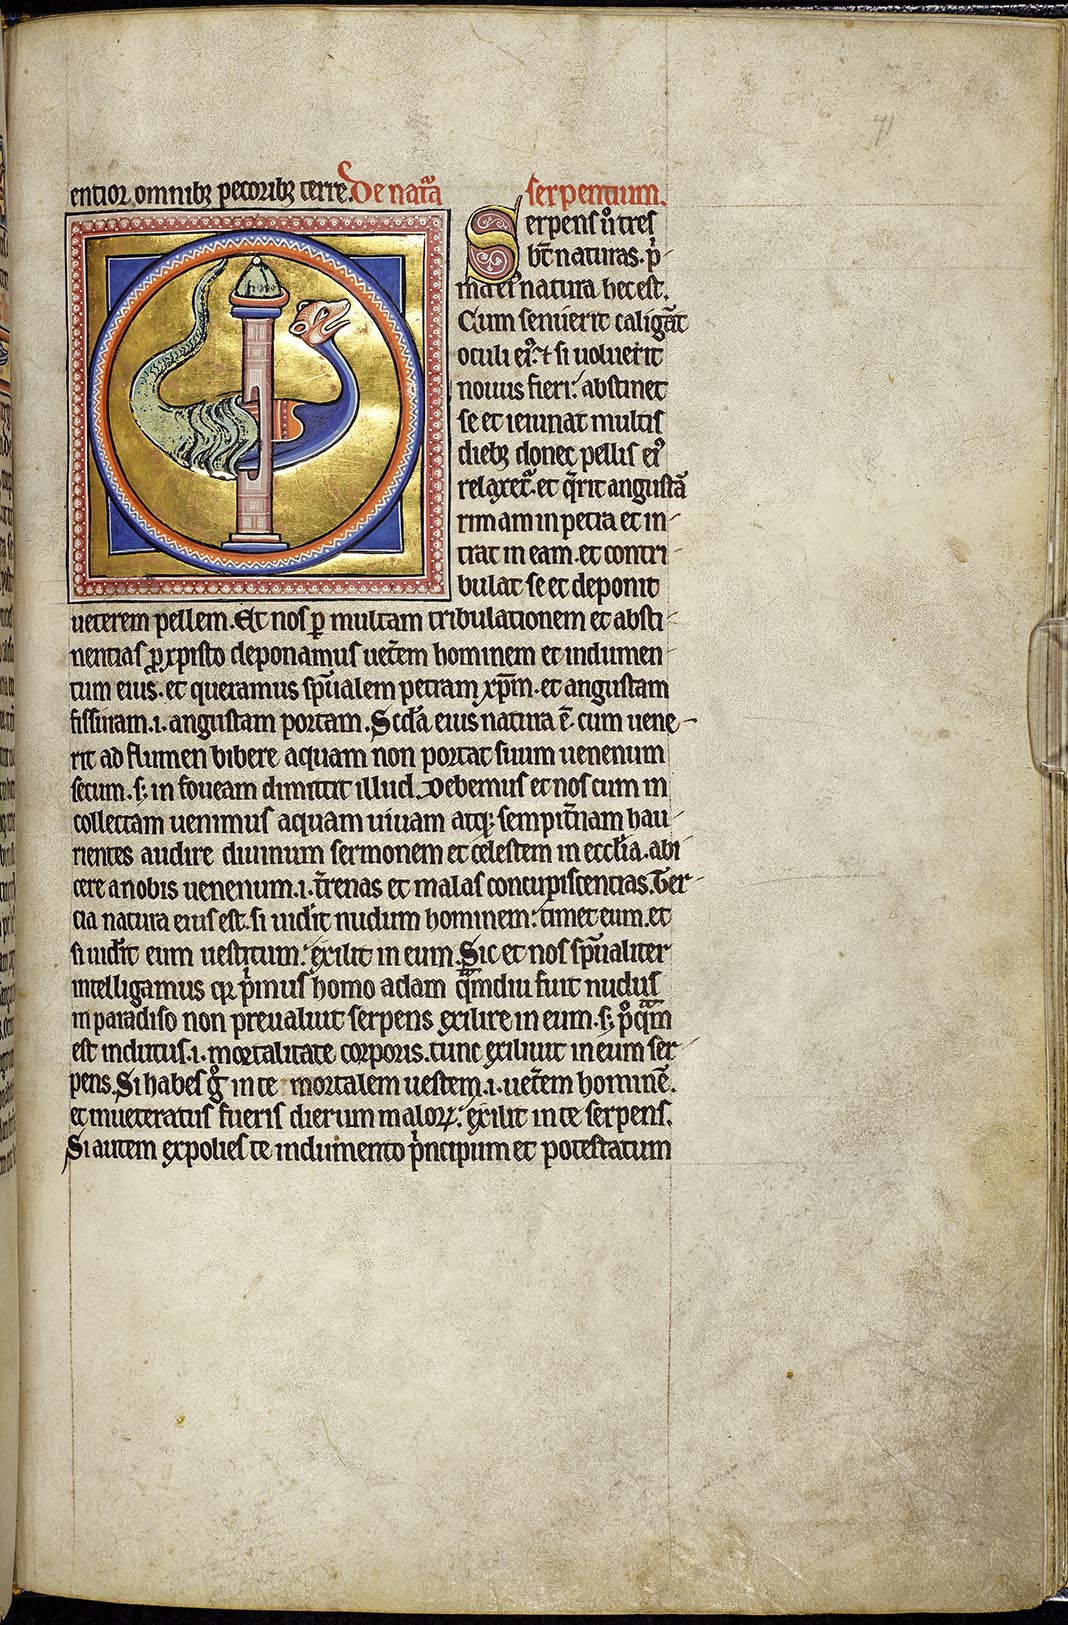 71
entior omnibꝫ pecoribꝫ terre. De nat᷑a serpentium.
Serpens ů tres
ht̄ naturas. pͥ
ma eiꝰ natura hec est.
Cum senuerit caligāt
oculi eiꝰ. ⁊ si uoluerit
nouus fieri: abstinet
se et ieiunat multis
diebꝫ donec pellis eiꝰ
relaxet᷑. et q̄rit angustā
rimam in petra et in-
trat in eam. et contri-
bulat se et deponit
ueterem pellem. Et nos ꝑ multam tribulationem et absti-
nentias ꝓ xpisto deponamus uet̄em hominem et indumen-
tum eius. et queramus sp̄ualem petram xp̄m. et angustam
fissuram .i. angustam portam. Scd̄a eius natura ē. cum uene-
rit ad flumen bibere aquam non portat suum uenenum
secum. sꝫ in foueam dimittit illud. Debemus et nos cum in
collectam uenimus aquam uiuam atqꝫ sempit̄nam hau-
rientes audire diuinum sermonem et celestem in eccl̄ia. abi-
cere a nobis uenenum .i. t̄renas et malas concupiscentias. Ter-
cia natura eius est. si uid̄it nudum hominem: timet eum. et
si uid̄it eum uestitum: exilit in eum. Sic et nos sp̄ualiter
intelligamus qꝛ pͥmus homo adam qᷓmdiu fuit nudus
in paradiso non preualuit serpens exilire in eum. sꝫ pͦqᷓm
est indutus .i. mortalitate corporis. tunc exiliuit in eum ser-
pens. Si habes gͦ in te mortalem uestem .i. uet̄em hominē.
et inueteratus fueris dierum maloꝝ: exilit in te serpens.
Si autem expolies te indumento pͥncipum et potestatum